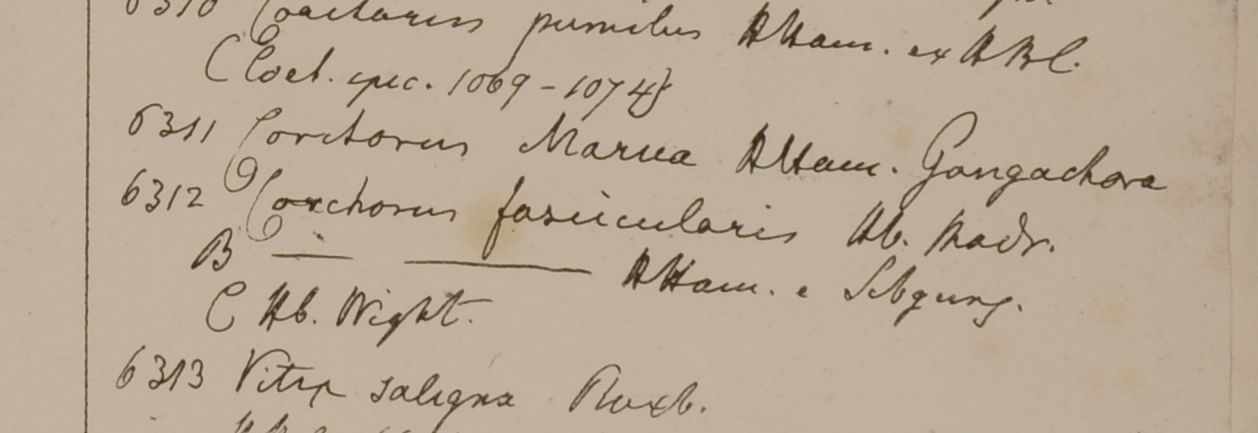 6310 pumilus HHam. ex HBC.
(Coel. spec. 1069-1074}
6311 Corchorus Marua HHam. Gongachora
6312 Corchorus fasiicularis Hb. Madr.
B — — HHam. e Sibgung.
C Hb. Wight.
6313 Vitex saligna Roxb.